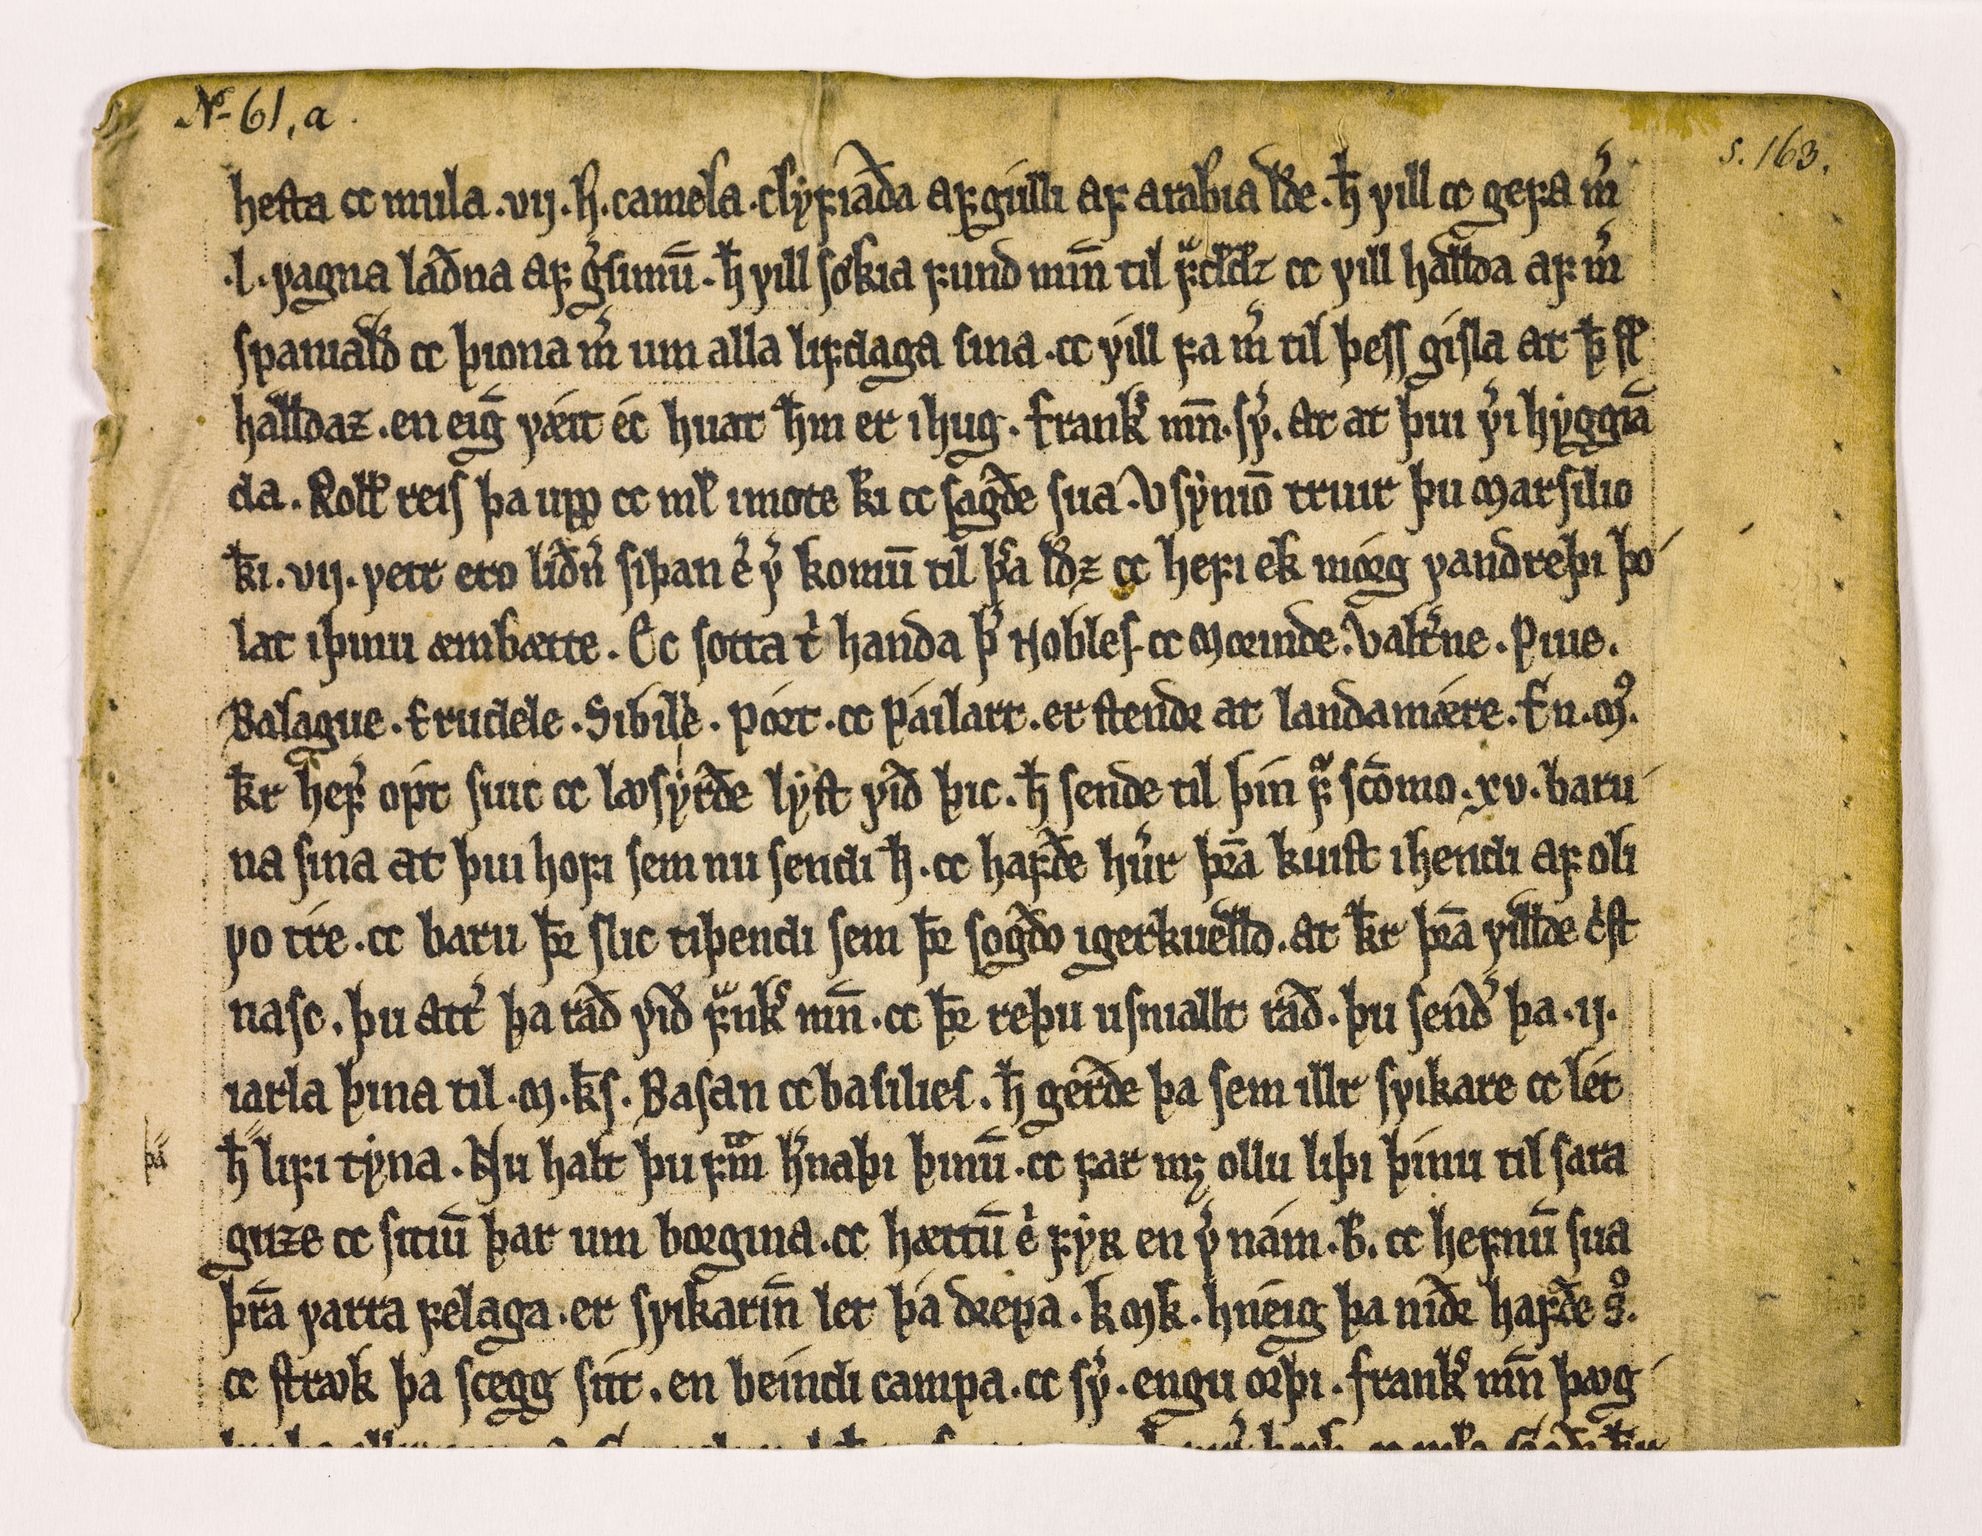 № 61, a.
s. 163.
heſta ⁊ mula . vij . h̄ . camela . clyfiaða af gulli af arabia lðe . h̄ vill ⁊ gefa m̄
.l. vagna laðna af gſimū . h̄ vill ſøkia fund minn til ⁊ vill hallda af m̄
ſpanialð ⁊ þiona m̄ um alla lifdaga ſina . ⁊ vill fa m̄ til þeſſ giſla at þ̄ ſl
halldaz . en eiḡ væit ec huat h̄m er ihug . Frank mn̄ . ſv̄ . at at þui v̄i hyggia
da . Roll reiſ þa upp ⁊ ml imote k̄i ⁊ ſagðe ſua . Vſynio truir þu Marſilio
k̄i . vij . vett ero liðn̄ ſiþan komū til þa lðz ⁊ hefi ek morg vandreþi þo
lat iþinu æmbætte . Ec ſotta t̄ handa þ̄ Nobleſ ⁊ Morinde . Valtne . Pine .
Balague . Erudele . Sibilie . port . ⁊ Pailart . er ſtendr at landamære . En . M̄ .
k̄r hef̄ opt ſuic ⁊ lꜹſyrðe lyſt við þic . h̄ ſende til þin ſcōmo . xv . baru
na ſina at þui hofi ſem nu ſendi h̄ . ⁊ hafðe hū̄r þra kuiſt ihendi af oli
vo tre . ⁊ baru þr̄ ſlic tiþendi ſem þr̄ ſogðo igerkuelld . at k̄r þra villde c̄ſt
naſc . þu att̄ þa rað við fnk mn̄ . ⁊ þr̄ reþu uſniallt rað . þu ſenð þa . ij .
iarla þina til . M . k̄ſ . Baſan ⁊ baſilieſ . h̄ gerðe þa ſem illr ſvikare ⁊ let
þa
h̄ lifi tyna . Nu halt þu fm̄ h̄naþi þinū . ⁊ far mꝫ ollu liþi þinu til ſara
guze ⁊ ſitiū þar um borgina . ⁊ hættū ē fyʀ en v̄ nam . B . ⁊ hefnū ſua
þra varra felaga . er ſvikarin̄ let þa drepa . k Mk . hneig þa niðr hafðe ſ .
⁊ ſtrꜹk þa ſcegg ſitt . en beindi campa . ⁊ ſv̄ . engu orþi . frank mn̄ þꜹg